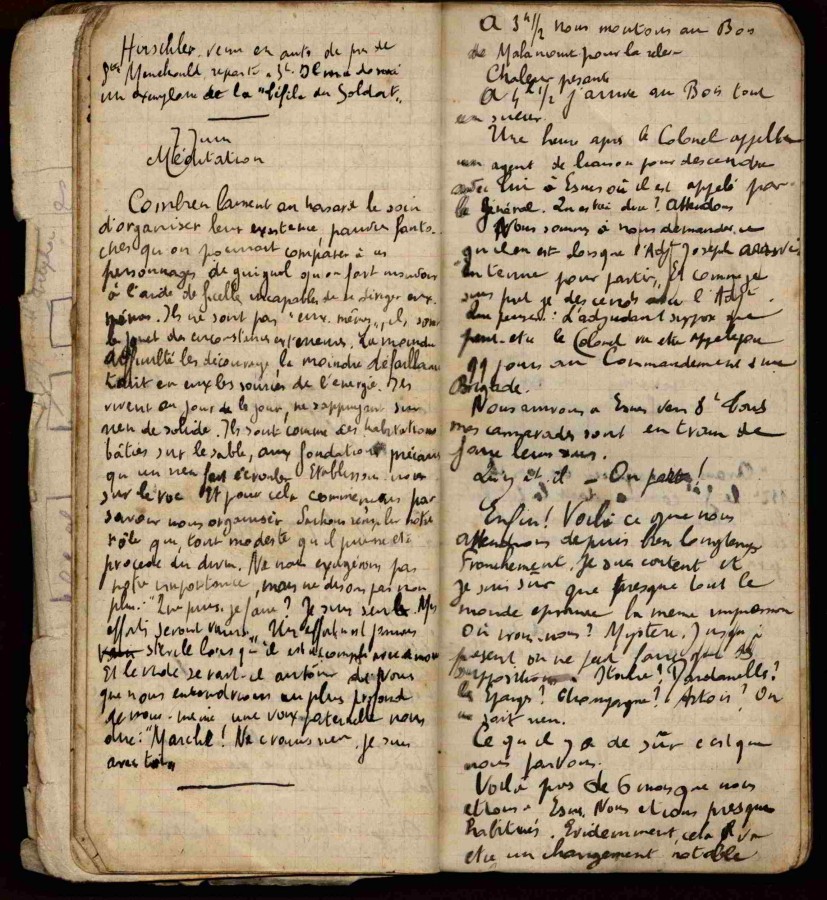 Hirschler, venu en auto de
Ste Menehould, repart à 5h. Il m'a donné
un exemplaire de la "Bible du Soldat".
7 Juin
Méditation
Combien laissent au hasard le soin
d'organiser leur existence, pauvres fanto-
ches qu'on pourrait comparer à ces
personnages de guignol qu'on fait mouvoir
à l'aide de ficelles, incapables de se diriger eux-
mêmes. Ils ne sont pas "eux-mêmes", ils sont
le jouet des circonstances extérieures. La moindre
difficulté les décourage, la moindre défaillance
tarit en eux les sources de l'énergie. Ils
vivent au jour le jour, ne s'appuyant sur
rien de solide. Ils sont comme des habitations
bâties sur le sable, aux fondations précaires
qu'un rien fait écrouler. Etablissons-nous
sur le roc. Et pour cela commençons par
savoir nous organiser. Sachons remplir notre
rôle qui, tout modeste qu'il puisse être
procède du divin. Ne nous exagérons pas
notre importance, mais ne disons pas non
plus: "Que puis-je faire? Je suis seul. Mes
efforts seront vains". Un effort n'est jamais
stérile lorsqu'il est accompli avec amour
Et le vide se ferait-il autour de nous
que nous entendrions au plus profond
de nous-même une voix paternelle nous
dire: "Marche! Ne crains rien, je suis
avec toi"
A 3h 1/2 nous montons au Bois
de Malancourt pour la relève
Chaleur pesante
A 4h 1/2 j'arrive au Bois tout
en sueur.
Une heure après le Colonel appelle
un agent de liaison pour descendre
avec lui à Esnes où il est appelé par
le Général. Qu'est-ce à dire? Attendons
Nous sommes à nous demander ce
qu'il en est lorsque l'Adjt Joseph arrive
en tenue pour partir. Et comme je
suis prêt je descends avec l'Adjt.
L'adjudant suppose que
peut-être le Colonel va être appelé pour
qq jours au Commandement d'une
Brigade.
Nous arrivons à Esnes vers 8h. Tous
mes camarades sont en train de
faire leurs sacs.
Qu'y a-t-il - On part!
Enfin! Voilà ce que nous
attendions depuis bien longtemps
Franchement, je suis content et
je suis sûr que presque tout le
monde éprouve la même impression
Où irons-nous? Mystère. Jusqu'à
présent, on ne fait que des
suppositions. Italie? Dardanelles?
les Eparges? Champagne? Artois? On
ne sait rien.
Ce qu'il y a de sûr c'est que
nous partons.
Voilà près de 6 mois que nous
étions à Esnes. Nous étions presque
habitués. Evidemment, cela va
être un changement notable